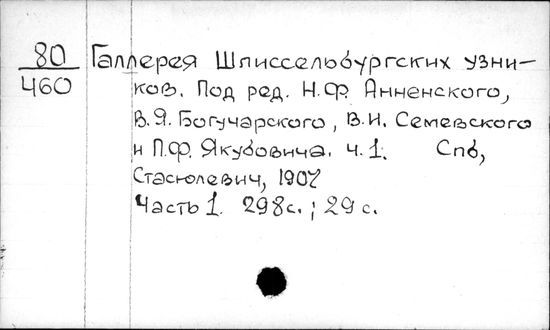 80
460
Галлерея Шлиссельбургских узни-
ков. Под ред. Н.Ф. Анненского,
В.Я. Богучарского, В.И. Семевского
и П.Ф. Якубовича. ч.1. Спб,
Стасюлевич, 1907
Часть 1. 298с.; 29 с.